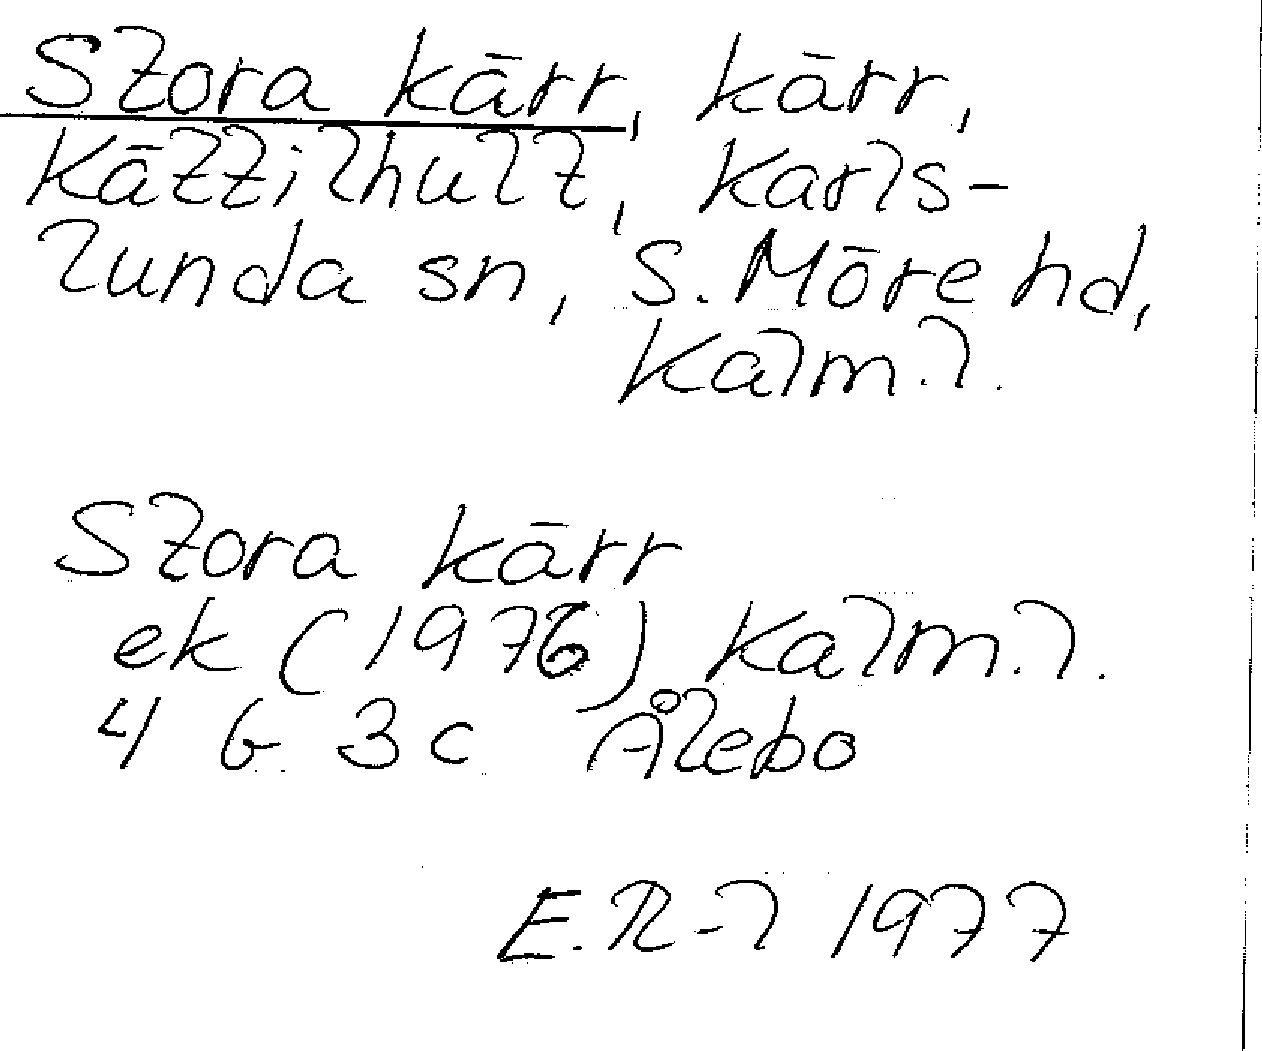 Stora kärr, kärr,
Kättilhult, Karls-
lunda sn, S. Möre hd,
Kalm. l.
Stora kärr
ek (1976) Kalm. l.
4 G 3 c Ålebo
E. R-l 1977